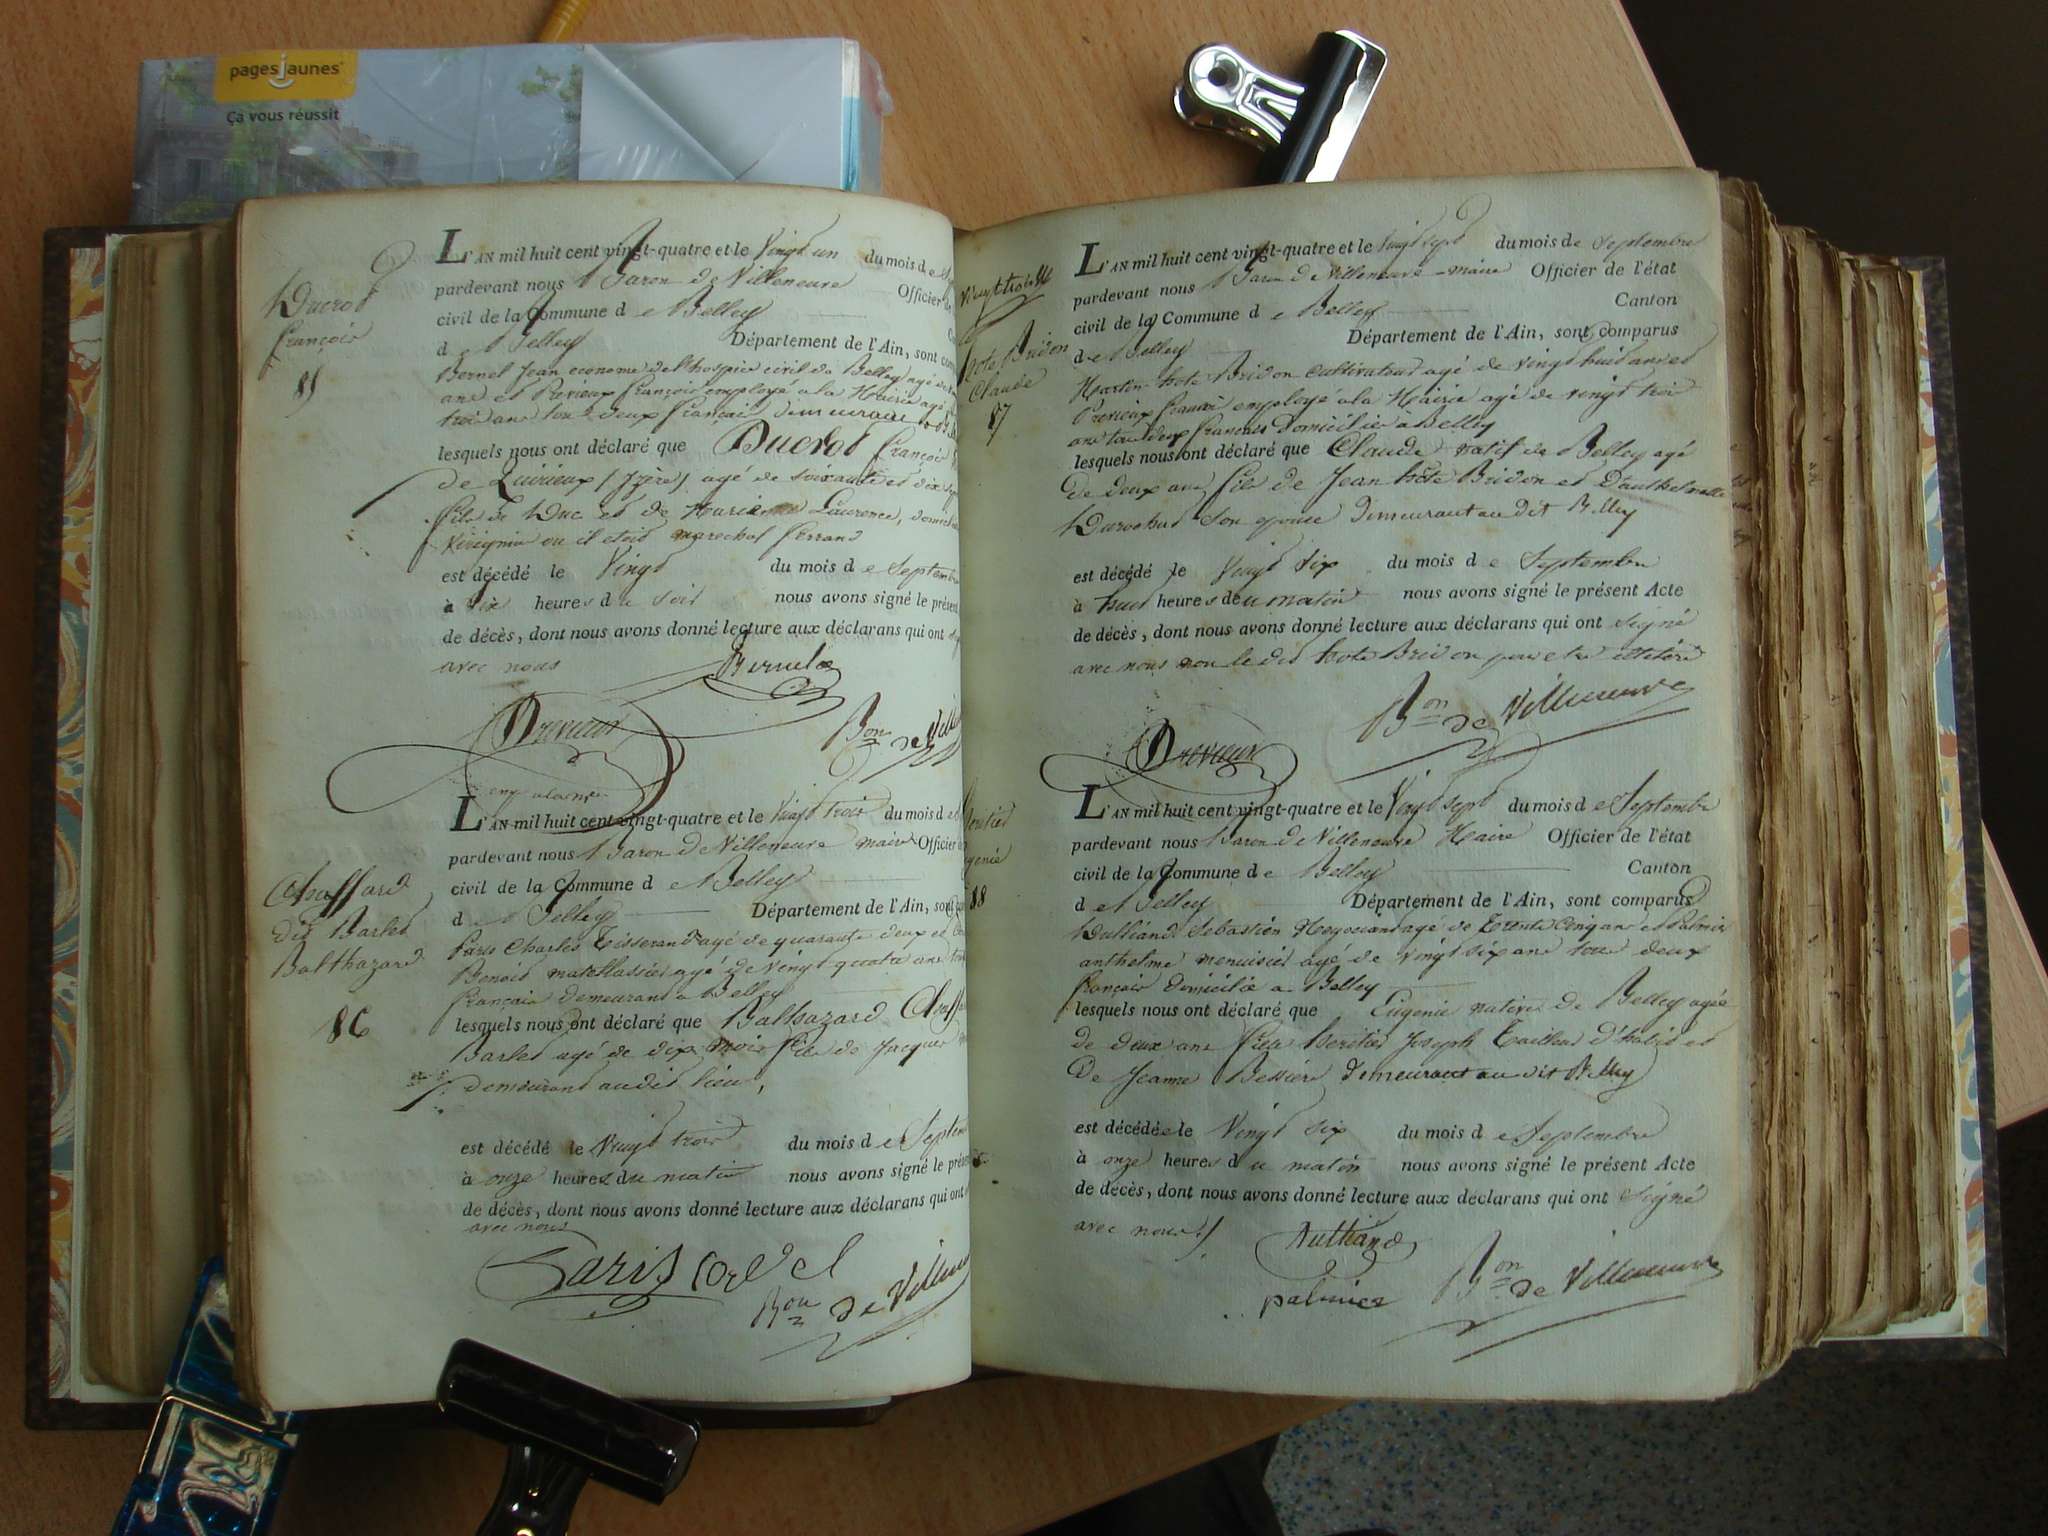 pagesjaunes
Ça vous réussit
Ducrot
François
85
L'AN mil huit cent vingt-quatre et le Vingt un du mois de
pardevant nous Baron de Villeneuve Officier
civil de la Commune de Belley
de Belley Département de l'Ain, sont
Bernel Jean econome de l'hospice civil de Belley agé de
ans et François employé a la Mairie agé
trois ans tous deux français demeurant
lesquels nous ont déclaré que Ducrot François
de (frère) agé de soixante et dix
fils de Luc et de Laurence,
ou il etoit marechal ferrand
est décédé le Vingt du mois de Septembre
à six heures du soir nous avons signé le présent
de décès, dont nous avons donné lecture aux déclarans qui ont
avec nous
Bon de
Chaffard
dit Barlet
Balthazard
86
L'AN mil huit cent vingt-quatre et le Vingt trois du mois de
pardevant nous Baron de Villeneuve maire Officier
civil de la Commune de Belley
de Belley Département de l'Ain, sont
Paris Charles Tisserand agé de quarante deux et
Benoit matellassier agé de Vingt quatre ans
français demeurant a Belley
lesquels nous ont déclaré que Balthazard
Barlet agé de dix mois fils de Jacques
demeurant audit lieu,
est décédé le Vingt trois du mois de
à onze heures du matin nous avons signé le
de décès, dont nous avons donné lecture aux déclarans qui ont
avec nous
Paris
Bon de
Claude
87
L'AN mil huit cent vingt-quatre et le Vingt sept du mois de Septembre
pardevant nous Baron de Villeneuve maire Officier de l'état
civil de la Commune de Belley Canton
de Belley Département de l'Ain, sont comparus
Martin hote Bridon cultivateur agé de vingt huit ans et
employé a la Mairie agé de vingt trois
ans tous deux francais domicilié a Belley
lesquels nous ont déclaré que Claude natif de Belley agé
de deux ans fils de Jean hôte Bridon et
son epouse demeurant au dit Belley
est décédé le Vingt six du mois de Septembre
à huit heures du matin nous avons signé le présent Acte
de décès, dont nous avons donné lecture aux déclarans qui ont signé
avec nous non le dit hote Bridon pour etre
Bon de Villeneuve
88
L'AN mil huit cent vingt-quatre et le Vingt sept du mois de Septembre
pardevant nous Baron de Villeneuve Maire Officier de l'état
civil de la Commune de Belley Canton
de Belley Département de l'Ain, sont comparus
Sebastien agé de Trente Cinq ans et Palmier
anthelme menuisier agé de vingt six ans tous deux
français domicilié a Belley
lesquels nous ont déclaré que Eugenie native de Belley agée
de deux ans fille heritier Joseph Tailleur d'habit et
de Jeanne Bessiere demeurant au dit Belley
est décédée le Vingt six du mois de Septembre
à onze heures du matin nous avons signé le présent Acte
de décès, dont nous avons donné lecture aux déclarans qui ont signé
avec nous
palmier
Bon de Villeneuve